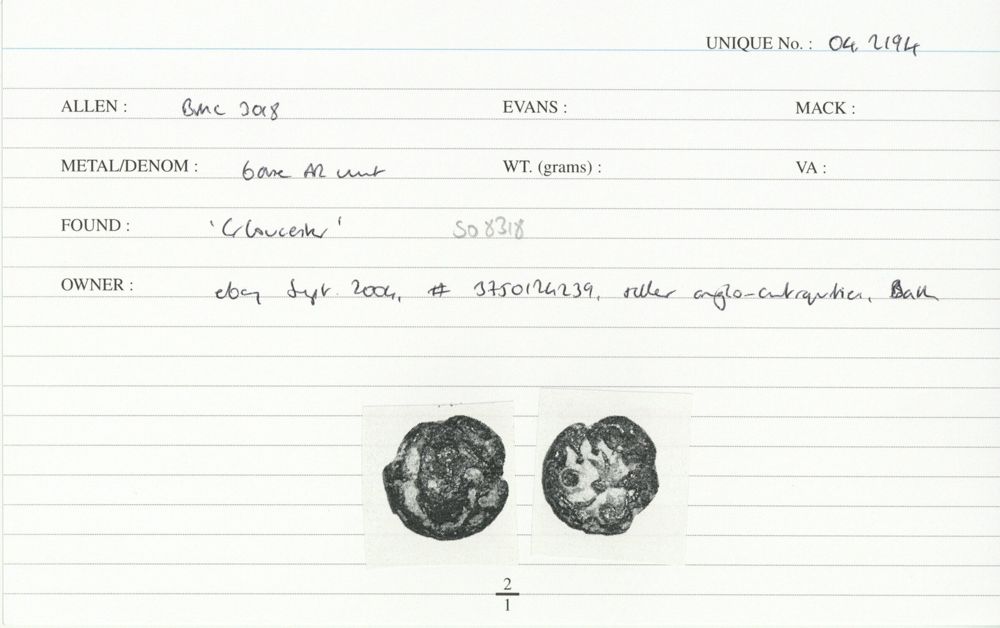 UNIQUE No. : 04. 2194
ALLEN : BMC 3018 EVANS : MACK :
METAL/DENOM : base AR unit WT. (grams) : VA :
FOUND : 'Gloucester' SO 8318
OWNER : ebay Sept. 2004, # 3750124239, seller anglo-antiquities, Bath
2
1